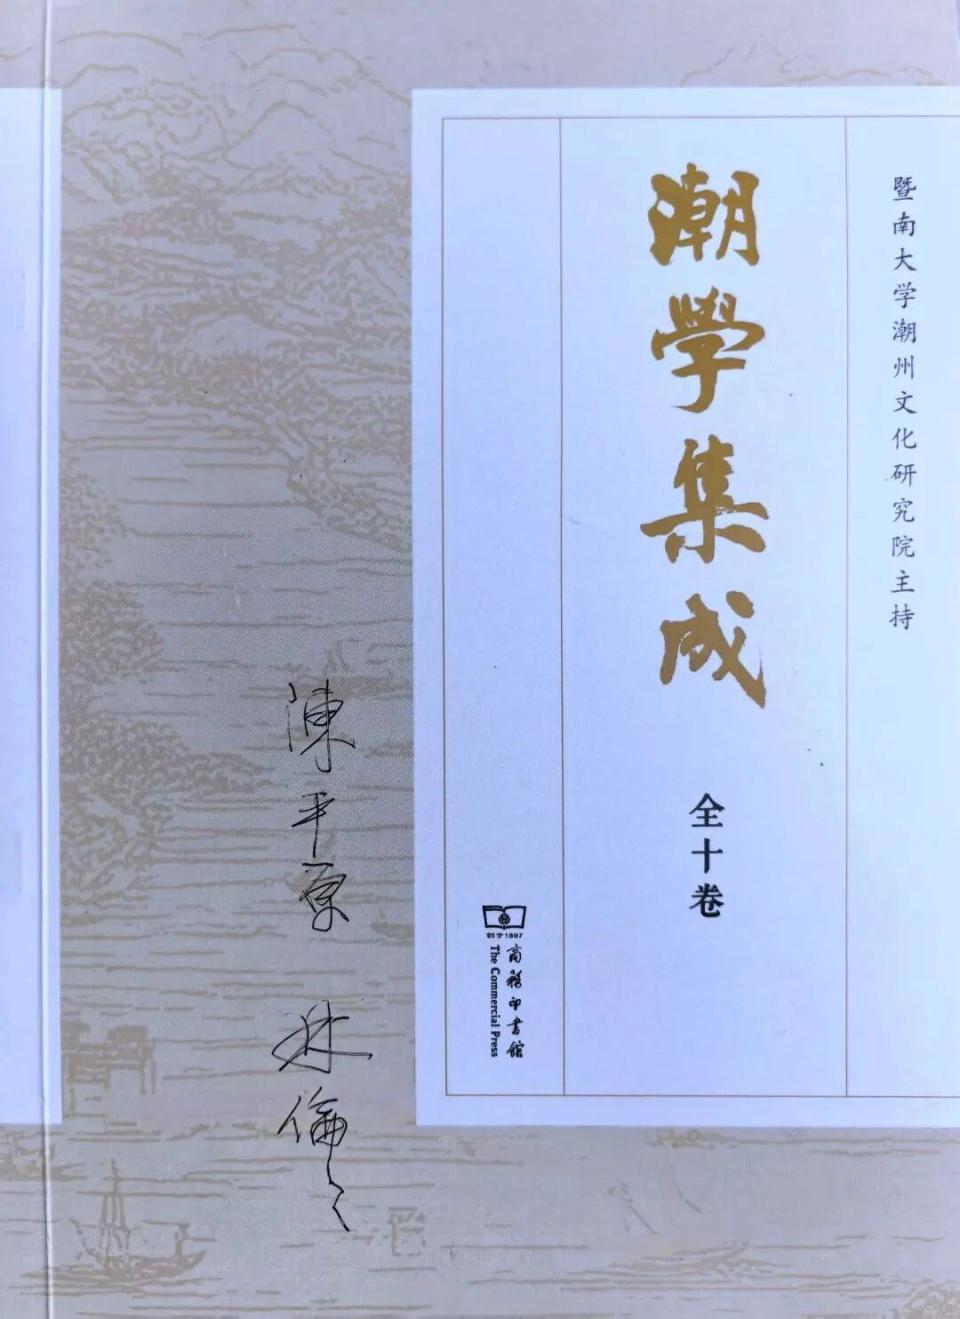 暨南大学潮州文化研究院主持
潮學集成
全十卷
创于1897
商務印書館
The Commercial Press
陳平原
林倫倫